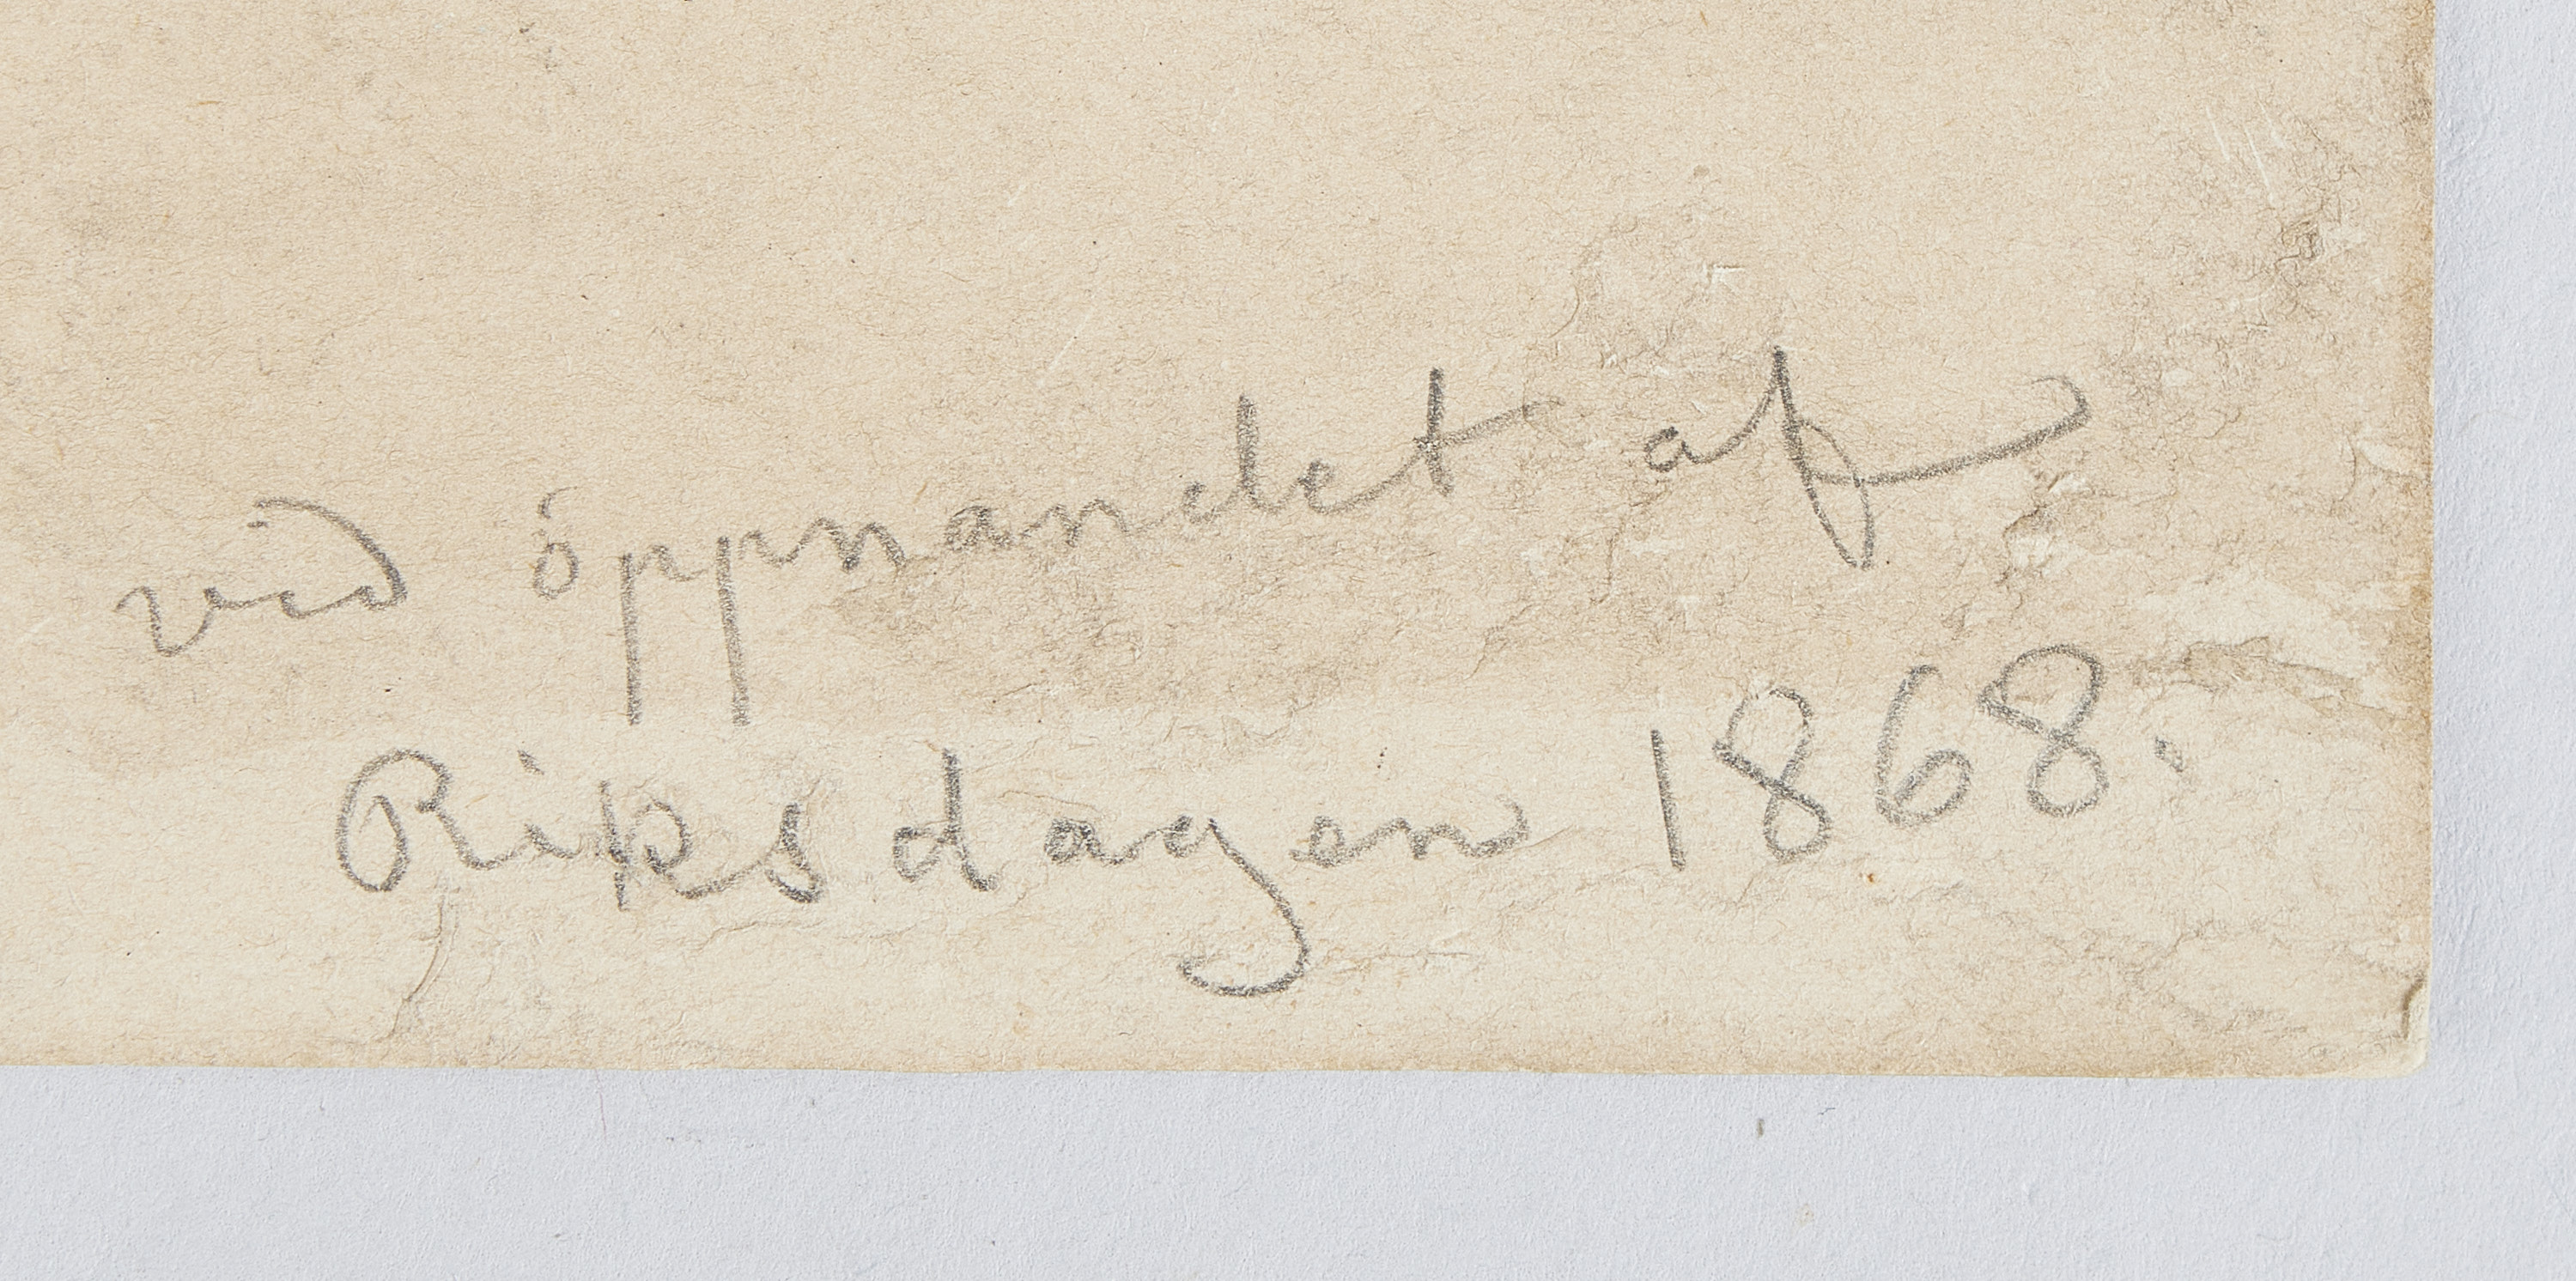 vid öppnandet af
Riksdagen 1868.